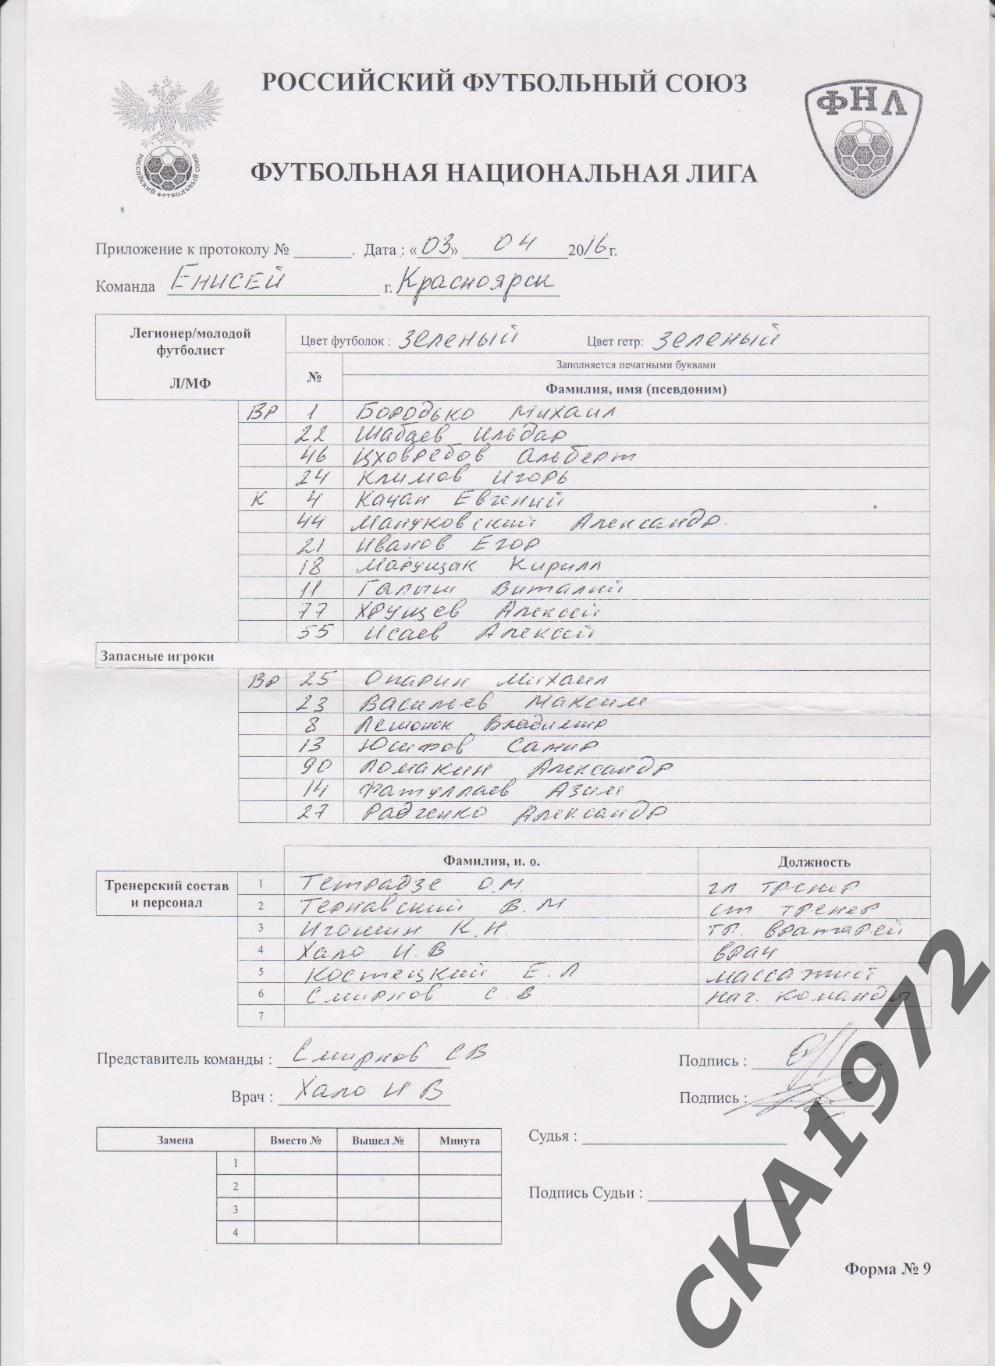 РОССИЙСКИЙ ФУТБОЛЬНЫЙ СОЮЗ
ФНЛ
РОССИЙСКИЙ ФУТБОЛЬНЫЙ СОЮЗ
ФУТБОЛЬНАЯ НАЦИОНАЛЬНАЯ ЛИГА
Приложение к протоколу № ______. Дата : «03» 04 2016 г.
Команда Енисей г. Красноярск
Легионер/молодой футболист Л/МФ
Цвет футболок : зеленый Цвет гетр: зеленый
№ Заполняется печатными буквами
Фамилия, имя (псевдоним)
ВР 1 Бородько Михаил
22 Шабаев Ильдар
46 Цховребов Альберт
24 Климов Игорь
К 4 Качан Евгений
44 Мануковский Александр.
21 Иванов Егор
18 Марущак Кирилл
11 Галыш Виталий
77 Хрущев Алексей
55 Исаев Алексей
Запасные игроки
ВР 25 Опарин Михаил
23 Васильев Максим
8 Лешонок Владимир
13 Юсифов Самир
90 Ломакин Александр
14 Фатуллаев Азим
27 Радченко Александр
Фамилия, и. о. Должность
Тренерский состав и персонал
1 Тетрадзе О.М. гл тренер
2 Тернавский В.М ст тренер
3 Игошин К.Н. тр. вратарей
4 Хало И.В врач
5 Костецкий Е.Л массажист
6 Смирнов С.В нач. команды
7
Представитель команды : Смирнов СВ Подпись :
Врач : Хало И В Подпись :
Замена Вместо № Вышел № Минута
1
2
3
4
Судья :
Подпись Судьи :
Форма № 9
СКА1972